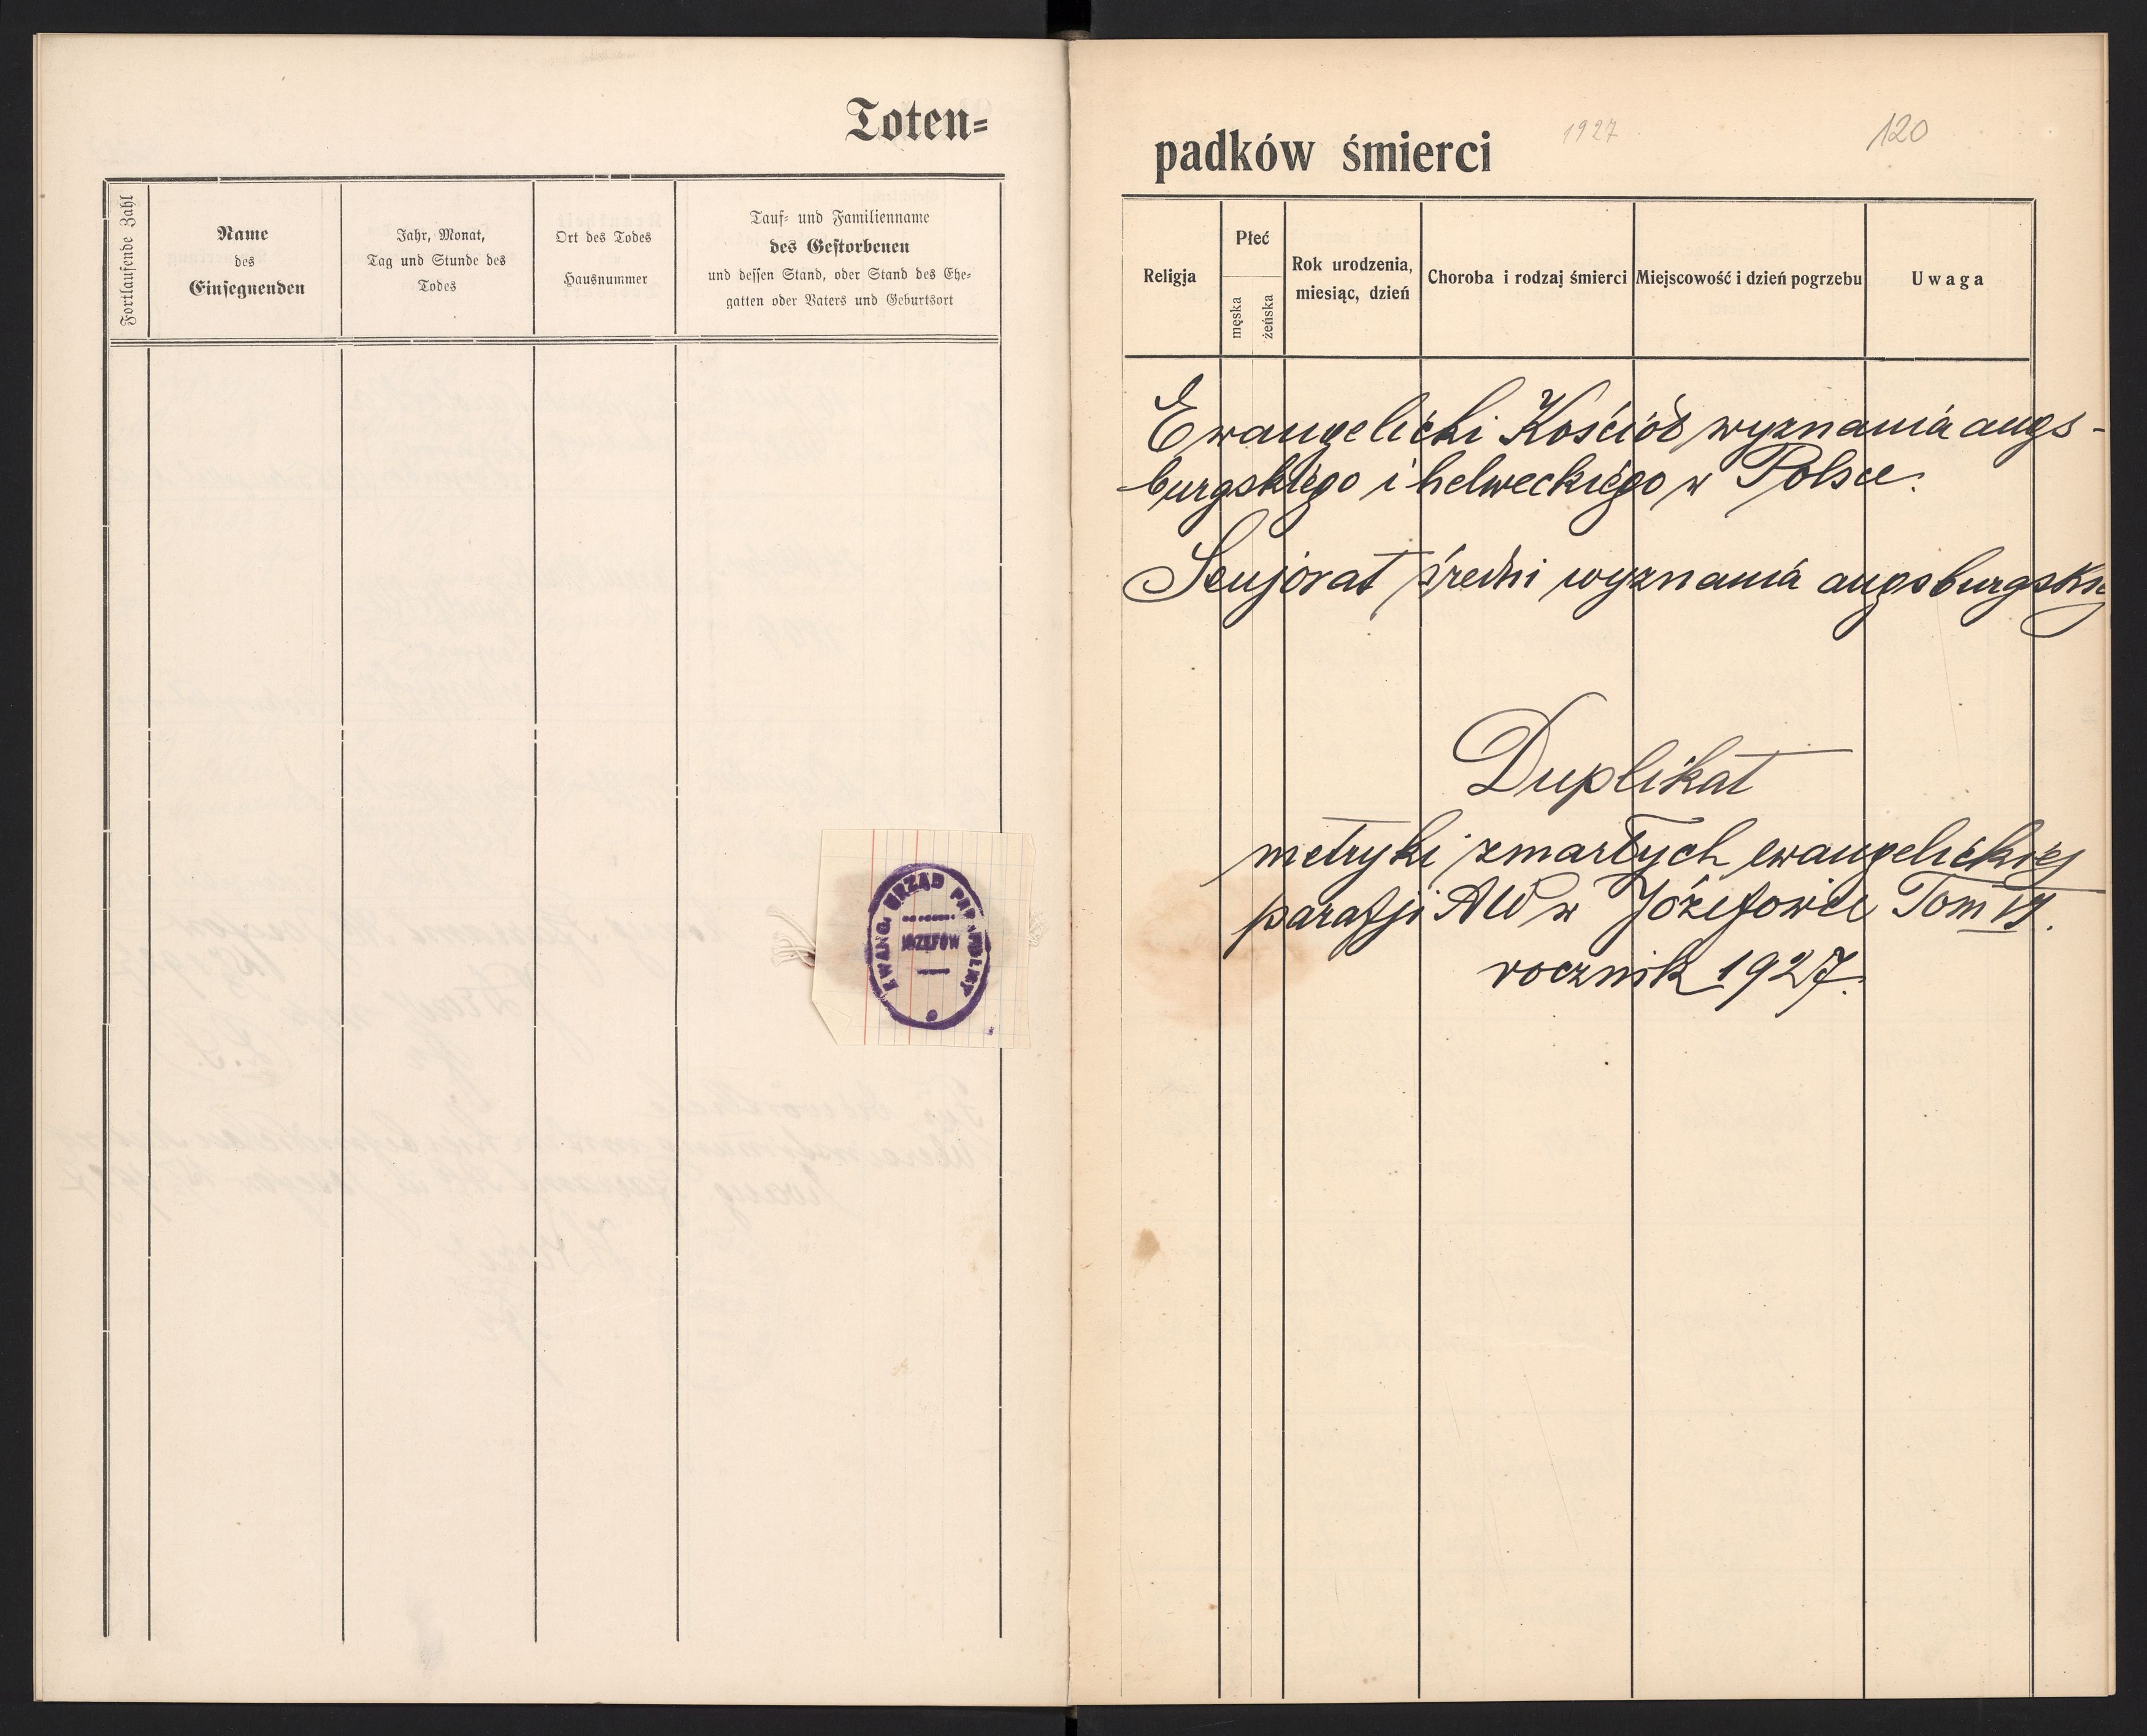 Toten=
Fortlaufende Zahl
Name
des
Einsegnenden
Jahr, Monat,
Tag und Stunde des
Todes
Ort des Todes
Hausnummer
Tauf- und Familienname
des Gestorbenen
und dessen Stand, oder Stand des Ehe-
gatten oder Vaters und Geburtsort
EWANG. URZĄD PARAFIALNY
JÓZEFÓW
padków śmierci
1927
120
Religja
Płeć
męska
żeńska
Rok urodzenia,
miesiąc, dzień
Choroba i rodzaj śmierci
Miejscowość i dzień pogrzebu
Uwaga
Ewangelicki Kościół wyznania augs-
burgskiego i helweckiego w Polsce.
Senjorat średni wyznania augsburgskieg
Duplikat
metryki zmarłych ewangelickiej
parafji AW w Józefowie Tom VI.
rocznik 1927.